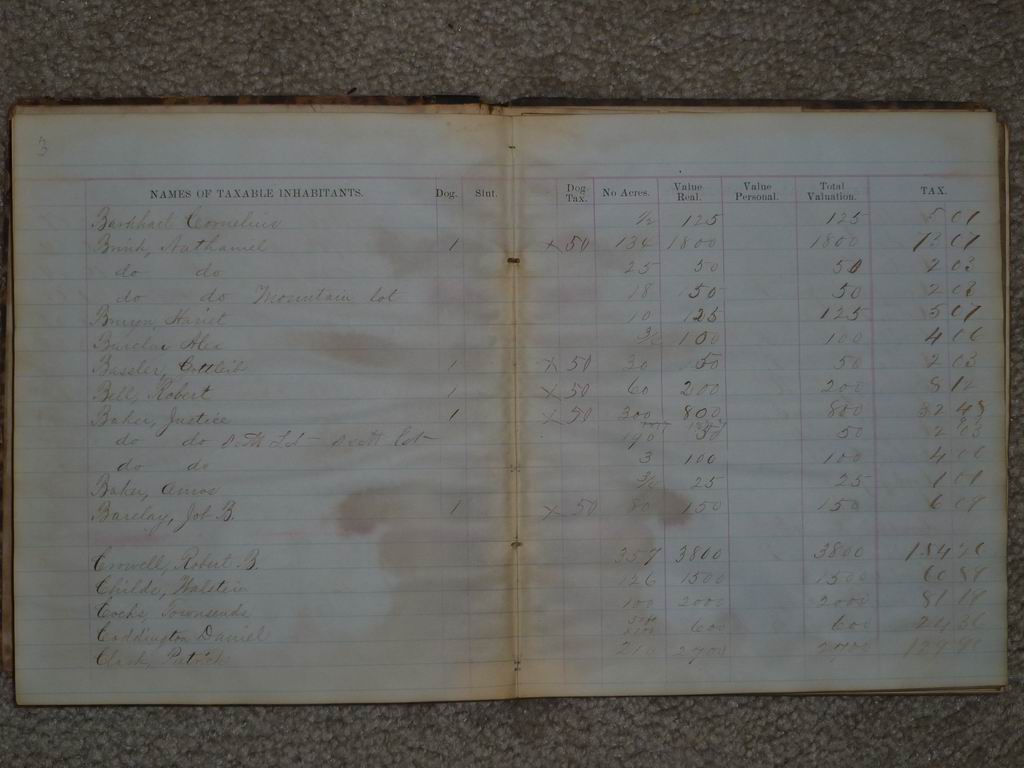 3
NAMES OF TAXABLE INHABITANTS. Dog. Slut. Dog Tax. No Acres. Value Real. Value Personal. Total Valuation. TAX.
Cornelius 1/2 125 125 5 07
Brink, Nathaniel 1 x 50 134 1800 1800 73 07
do do 25 50 50 2 03
do do Mountain lot 18 50 50 2 03
Bruyn, Hariet 10 125 125 5 07
Barclay Alex 100 100 4 06
Bassler, Gottleib 1 x 50 30 50 50 2 03
Bell, Robert 1 x 50 60 200 200 8 12
Baker, Justice 1 x 50 300 800 800 32 48
do do lot 190 50 50 2 03
do do 3 100 100 4 06
Baker, Amos 25 25 1 01
Barclay, Job B. 1 x 50 80 150 150 6 09
Crowell, Robert B. 357 3800 3800 154 26
Childs, Walstein 126 1500 1500 60 89
Cocks, Townsend 100 2000 2000 81 18
Coddington Daniel 600 600 24 36
Clark, Patrick 210 2700 2700